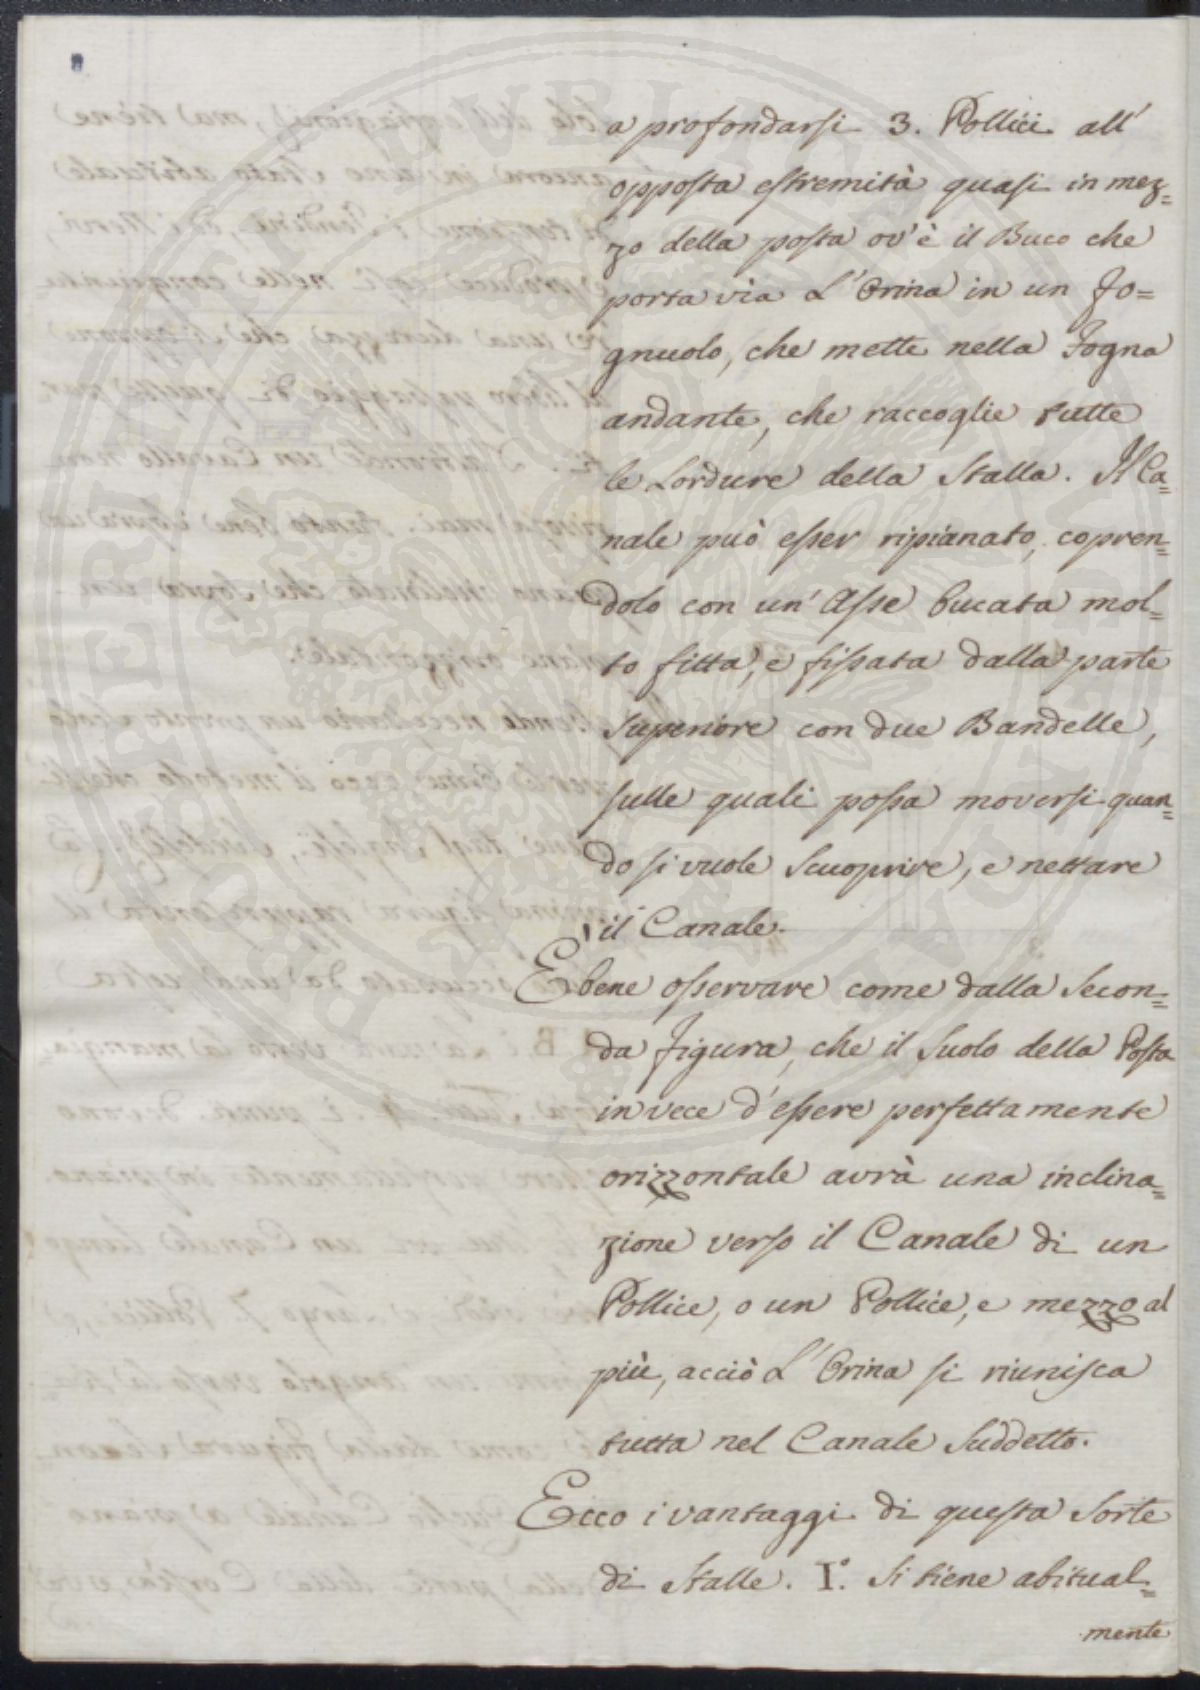 a profondarsi 3. Pollici all'
opposta estremità quasi in mez=
zo della posta ov'è il Buco che
porta via L'Orina in un Fo=
gnuolo, che mette nella Fogna
andante, che raccoglie tutte
le Lordure della Stalla. Il Ca=
nale può esser ripianato, copren=
dolo con un' Asse bucata mol=
to fitta, e fissata dalla parte
superiore con due Bandelle,
sulle quali possa moversi quan=
do si vuole Scuoprire, e nettare
il Canale.
E' bene osservare come dalla Secon=
da figura, che il Suolo della Posta
invece d'essere perfettamente
orizzontale avrà una inclina=
zione verso il Canale di un
Pollice, o un Pollice, e mezzo al
più, acciò L'Orina si riunisca
tutta nel Canale Suddetto.
Ecco i vantaggi di questa Sorte
di Stalle. I.° Si tiene abitual=
mente